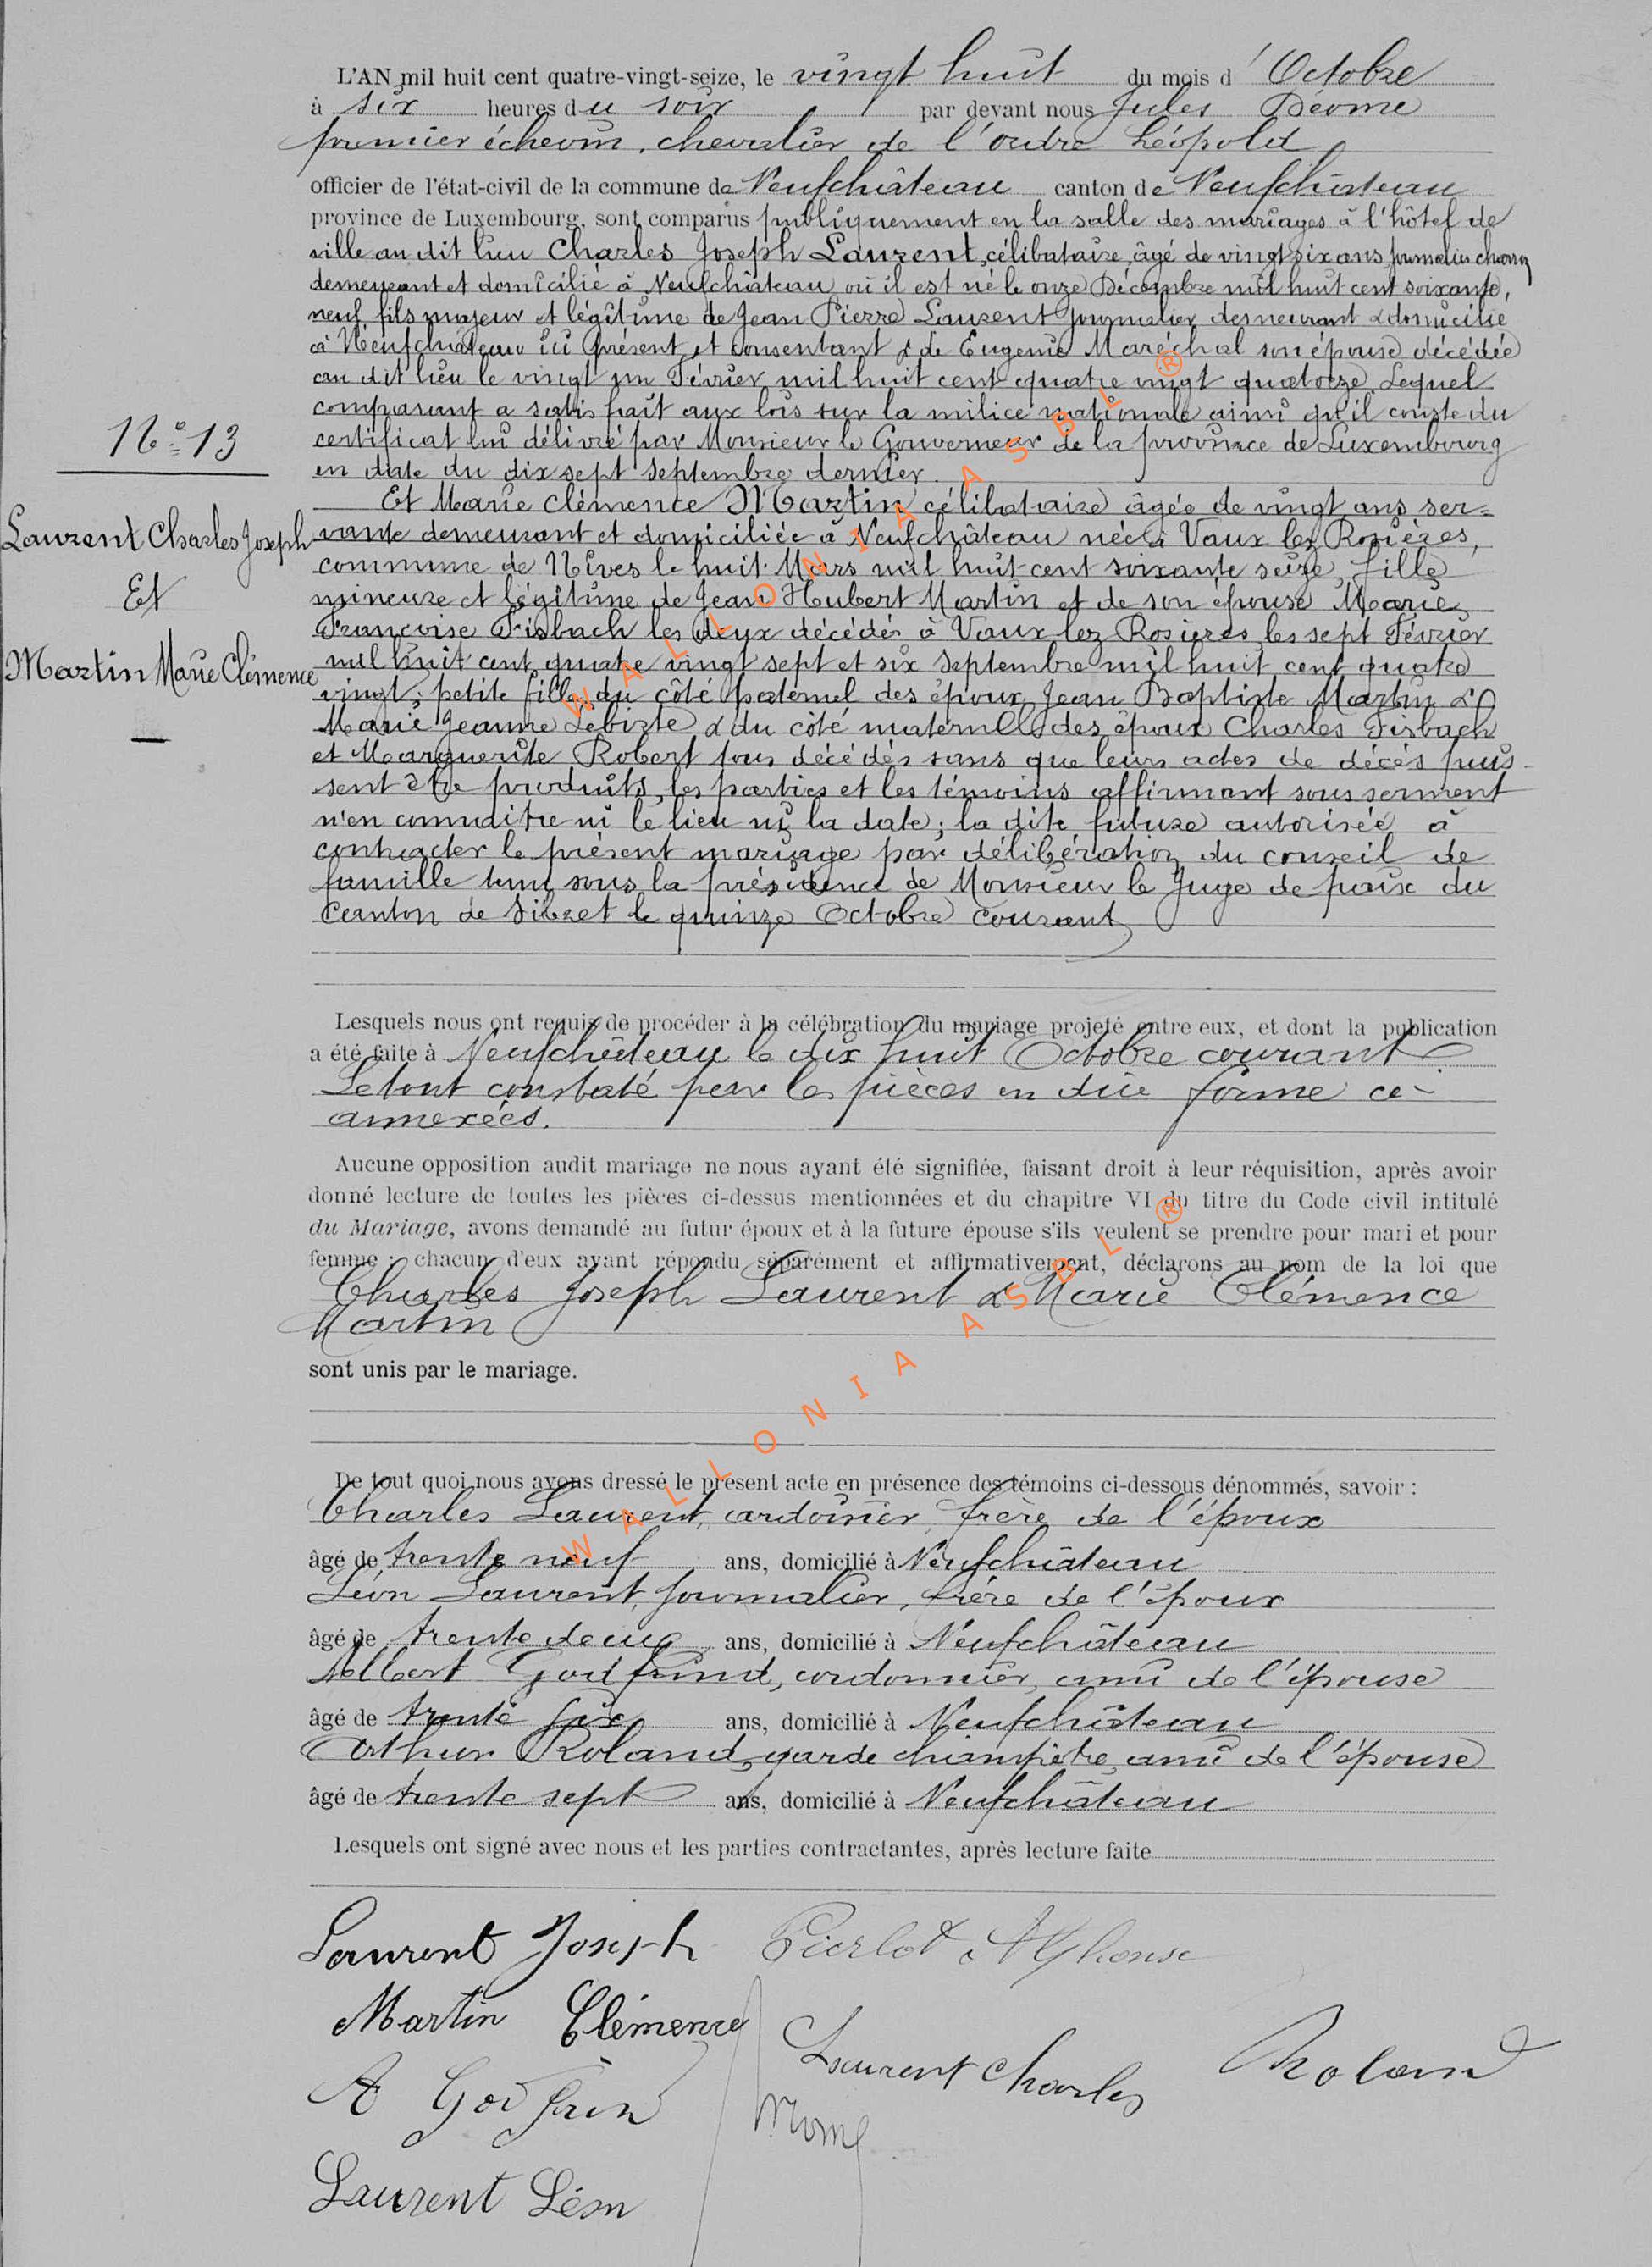 L'AN mil huit cent quatre-vingt-seize, le vingt huit du mois d'Octobre
à six heures du soir par devant nous Jules Déome
premier échevin, chevalier de l'ordre Léopold
officier de l'état-civil de la commune de Neufchâteau canton de Neufchâteau
province de Luxembourg, sont comparus publiquement en la salle des mariages à l'hôtel de
ville au dit lieu Charles Joseph Laurent, célibataire, âgé de vingt six ans, journalier
demeurant et domicilié à Neufchâteau où il est né le onze Décembre mil huit cent soixante,
neuf fils majeur et légitime de Jean Pierre Laurent journalier demeurant & domicilié
à Neufchâteau ici présent et consentant & de Eugenie Maréchal son épouse décédée
au dit lieu le vingt un Février mil huit cent quatre vingt quatorze. Lequel
comparant a satisfait aux lois sur la milice nationale ainsi qu'il conste du
certificat lui délivré par Monsieur le Gouverneur de la province de Luxembourg
en date du dix sept septembre dernier.
N° 13
Et Marie Clémence Martin célibataire âgée de vingt ans ser=
vante demeurant et domiciliée à Neufchâteau née à Vaux lez Rosières,
commune de Nives le huit Mars mil huit cent soixante seize, fille
mineure et légitime de Jean Hubert Martin et de son épouse Marie
Françoise Fisbach les deux décédés à Vaux lez Rosieres les sept Février
mil huit cent quatre vingt sept et six Septembre mil huit cent quatre
vingt; petite fille du côté paternel des époux Jean Baptiste Martin &
Marie Jeanne Lebizte & du côté maternelle des époux Charles Fisbach
et Marguerite Robert tous décédés sans que leurs actes de décès puis-
sent être produits, les parties et les témoins affirmant sous serment
n'en connaitre ni le lieu ni la date; la dite future autorisée à
contracter le présent mariage par délibération du conseil de
famille tenu sous la présidence de Monsieur le Juge de paix du
Canton de Sibret le quinze Octobre courant
Laurent Charles Joseph
Et
Martin Marie Clémence
Lesquels nous ont requis de procéder à la célébration du mariage projeté entre eux, et dont la publication
a été faite à Neufchâteau le dix huit Octobre courant
Le tout constaté par les pièces en due forme ci-
annexées.
Aucune opposition audit mariage ne nous ayant été signifiée, faisant droit à leur réquisition, après avoir
donné lecture de toutes les pièces ci-dessus mentionnées et du chapitre VI du titre du Code civil intitulé
du Mariage, avons demandé au futur époux et à la future épouse s'ils veulent se prendre pour mari et pour
femme ; chacun d'eux ayant répondu séparément et affirmativement, déclarons au nom de la loi que
Charles Joseph Laurent & Marie Clémence
Martin
sont unis par le mariage.
De tout quoi nous avons dressé le présent acte en présence des témoins ci-dessous dénommés, savoir :
Charles Laurent, ardoisier, frère de l'époux
âgé de trente neuf ans, domicilié à Neufchâteau
Léon Laurent, journalier, frère de l'époux
âgé de trente deux ans, domicilié à Neufchâteau
Albert Godfrind, cordonnier, ami de l'épouse
âgé de trente six ans, domicilié à Neufchâteau
Arthur Roland, garde champêtre, ami de l'épouse
âgé de trente sept ans, domicilié à Neufchâteau
Lesquels ont signé avec nous et les parties contractantes, après lecture faite
Laurent Joseph Pierlot Alphonse
Martin Clémence
Laurent Charles Roland
A Godfrin
Laurent Léon
WALLONIA ASBL ®
WALLONIA ASBL ®